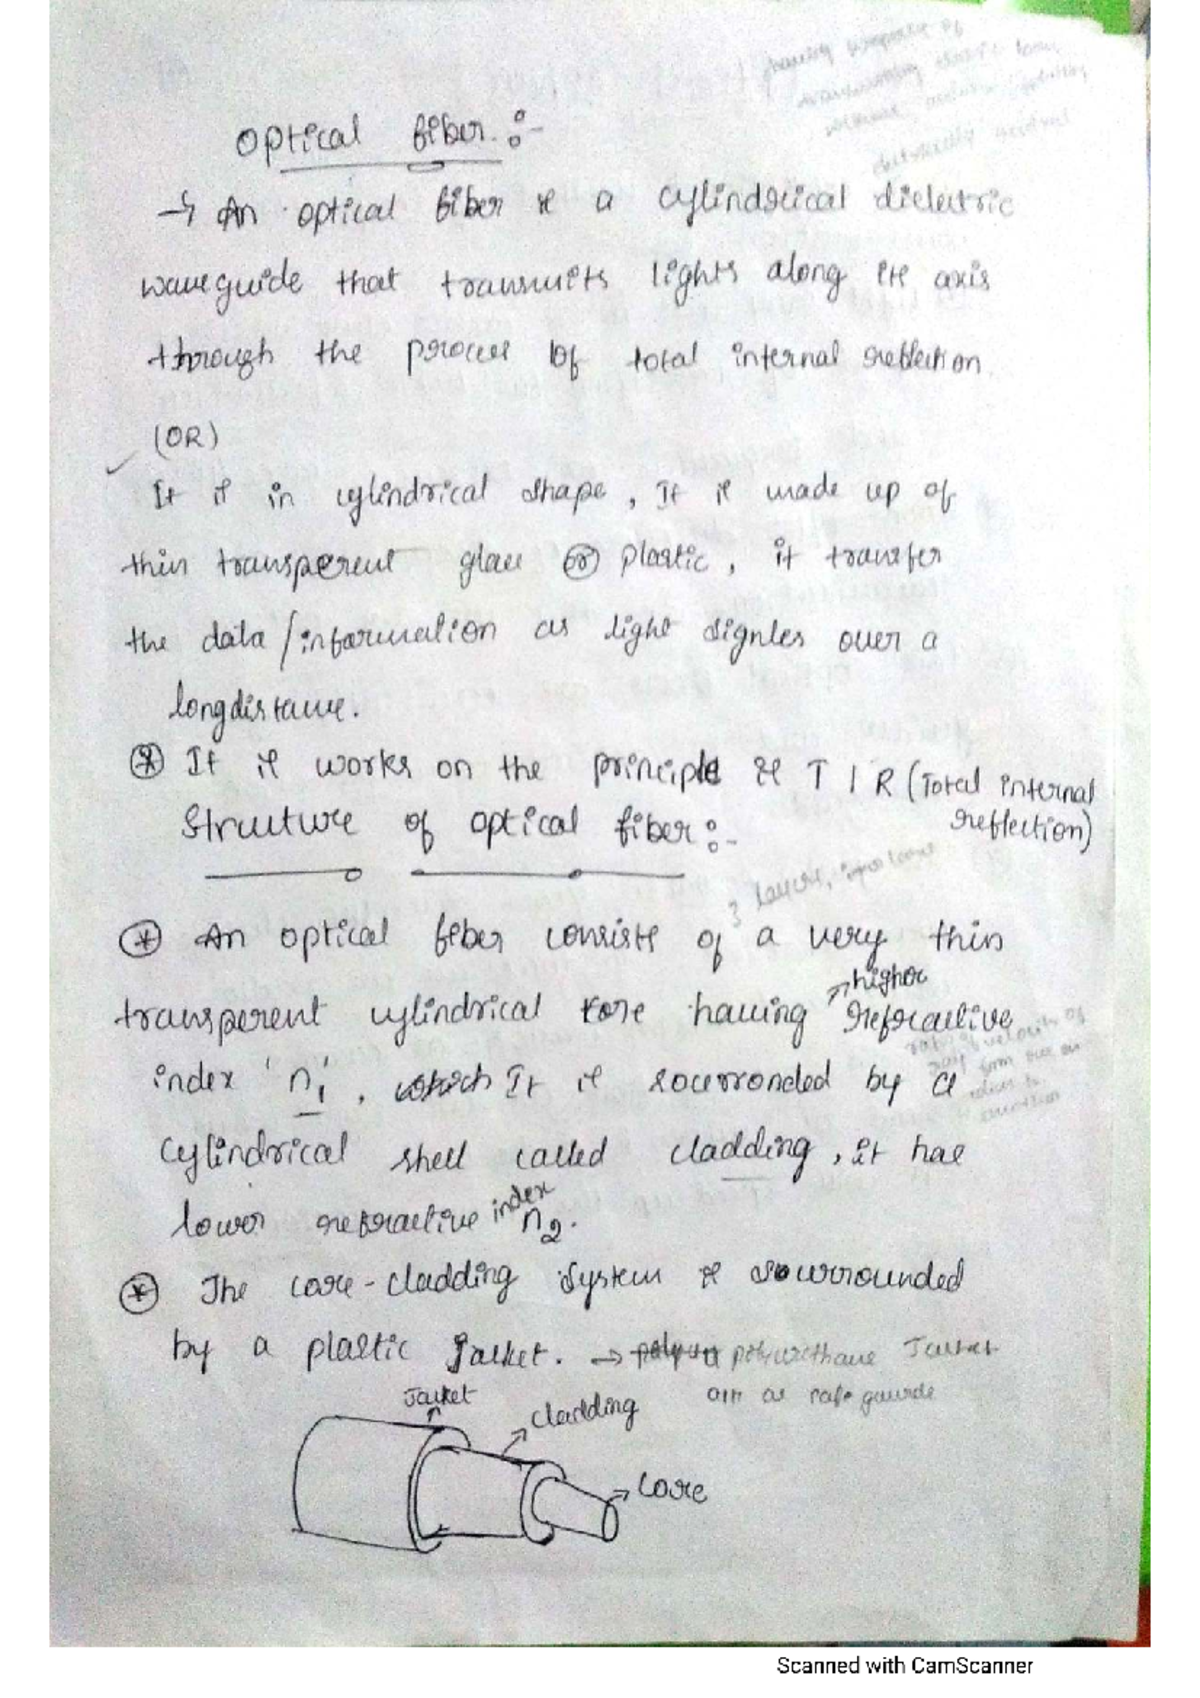 optical fiber :-
→ An optical fiber is a cylindrical dielectric
waveguide that transmits lights along its axis
through the process of total internal reflection.
(OR)
It is in cylindrical shape, It is made up of
thin transperent glass (or) plastic, it transfer
the data/information as light signles over a
longdistance.
* It is works on the principle is TIR (Total internal
reflection)
Structure of optical fiber :-
3 layers,
* An optical fiber consists of a very thin
higher
transperent cylindrical core having refractive
index 'n1', which It is sourronded by a
cylindrical shell called cladding, it has
lower refractive index n2.
* The core-cladding system is sourrounded
by a plastic Jacket. → polyurethane Jacket
act as safe gaurde
Jacket
cladding
core
Scanned with CamScanner